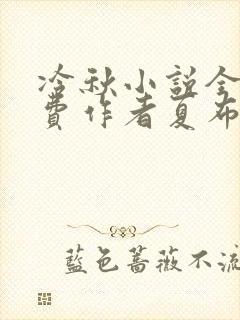 冷秋小説全
費作者夏布
藍色薔薇不流